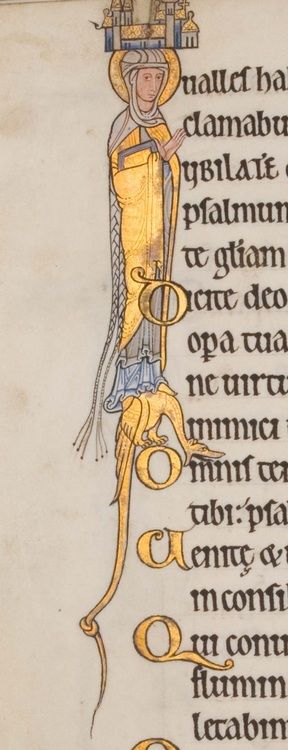 ualles ha
clamabu
IUBILATE
psalmum
te gl̄iam
Dicite deo
op̄a tua
ne uirtu
inimici
Omnis ter
tibi: psa
Uenite &
in consil
Qui conu
flumin
letabim